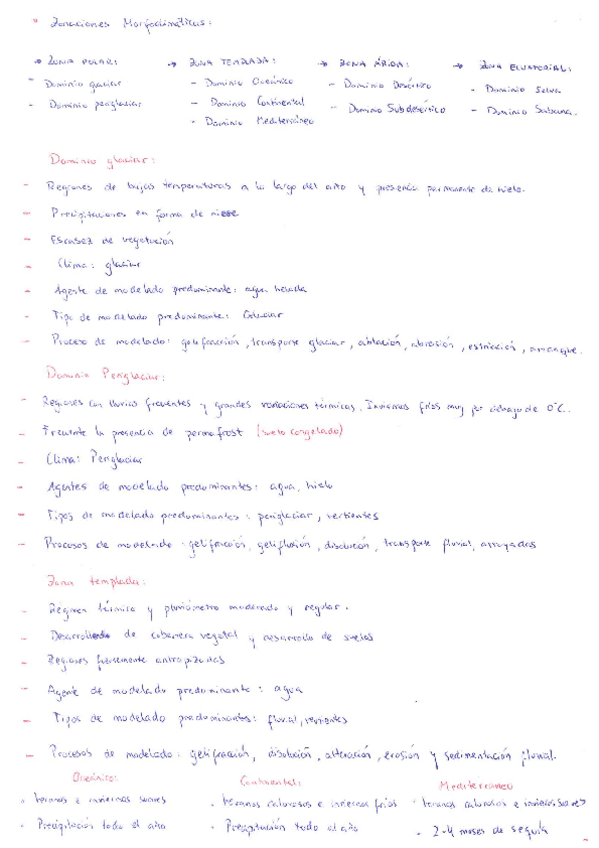 * Zonaciones Morfoclimáticas:
→ ZONA POLAR: → ZONA TEMPLADA: → ZONA ÁRIDA: → ZONA ECUATORIAL:
- Dominio glaciar - Dominio Oceánico - Dominio Desértico - Dominio Selva
- Dominio periglaciar - Dominio Continental - Dominio Subdesértico - Dominio Sabana.
- Dominio Mediterráneo
Dominio glaciar:
- Regiones de bajas temperaturas a lo largo del año y presencia permanente de hielo.
- Precipitaciones en forma de nieve
- Escasez de vegetación
- Clima: glaciar
- Agente de modelado predominante: agua helada
- Tipo de modelado predominante: Glaciar
- Proceso de modelado: gelifracción, transporte glaciar, ablación, abrasión, estriación, arranque.
Dominio Periglaciar:
- Regiones con lluvias frecuentes y grandes variaciones térmicas. Inviernos fríos muy por debajo de 0°C.
- Frecuente la presencia de permafrost (suelo congelado)
- Clima: Periglaciar
- Agentes de modelado predominantes: agua, hielo
- Tipos de modelado predominantes: periglaciar, vertientes
- Procesos de modelado: gelifracción, gelifluxión, disolución, transporte fluvial, arroyadas
Zona templada:
- Régimen térmico y pluviómetro moderado y regular.
- Desarrollo de cobertera vegetal y desarrollo de suelos
- Regiones fuertemente antropizadas
- Agente de modelado predominante: agua
- Tipos de modelado predominantes: fluvial, vertientes
- Procesos de modelado: gelifracción, disolución, alteración, erosión y sedimentación fluvial.
Oceánico: Continental: Mediterraneo
· Veranos e inviernos suaves · Veranos calurosos e inviernos fríos · Veranos calurosos e inviernos suaves
· Precipitación todo el año · Precipitación todo el año · 2-4 meses de sequía